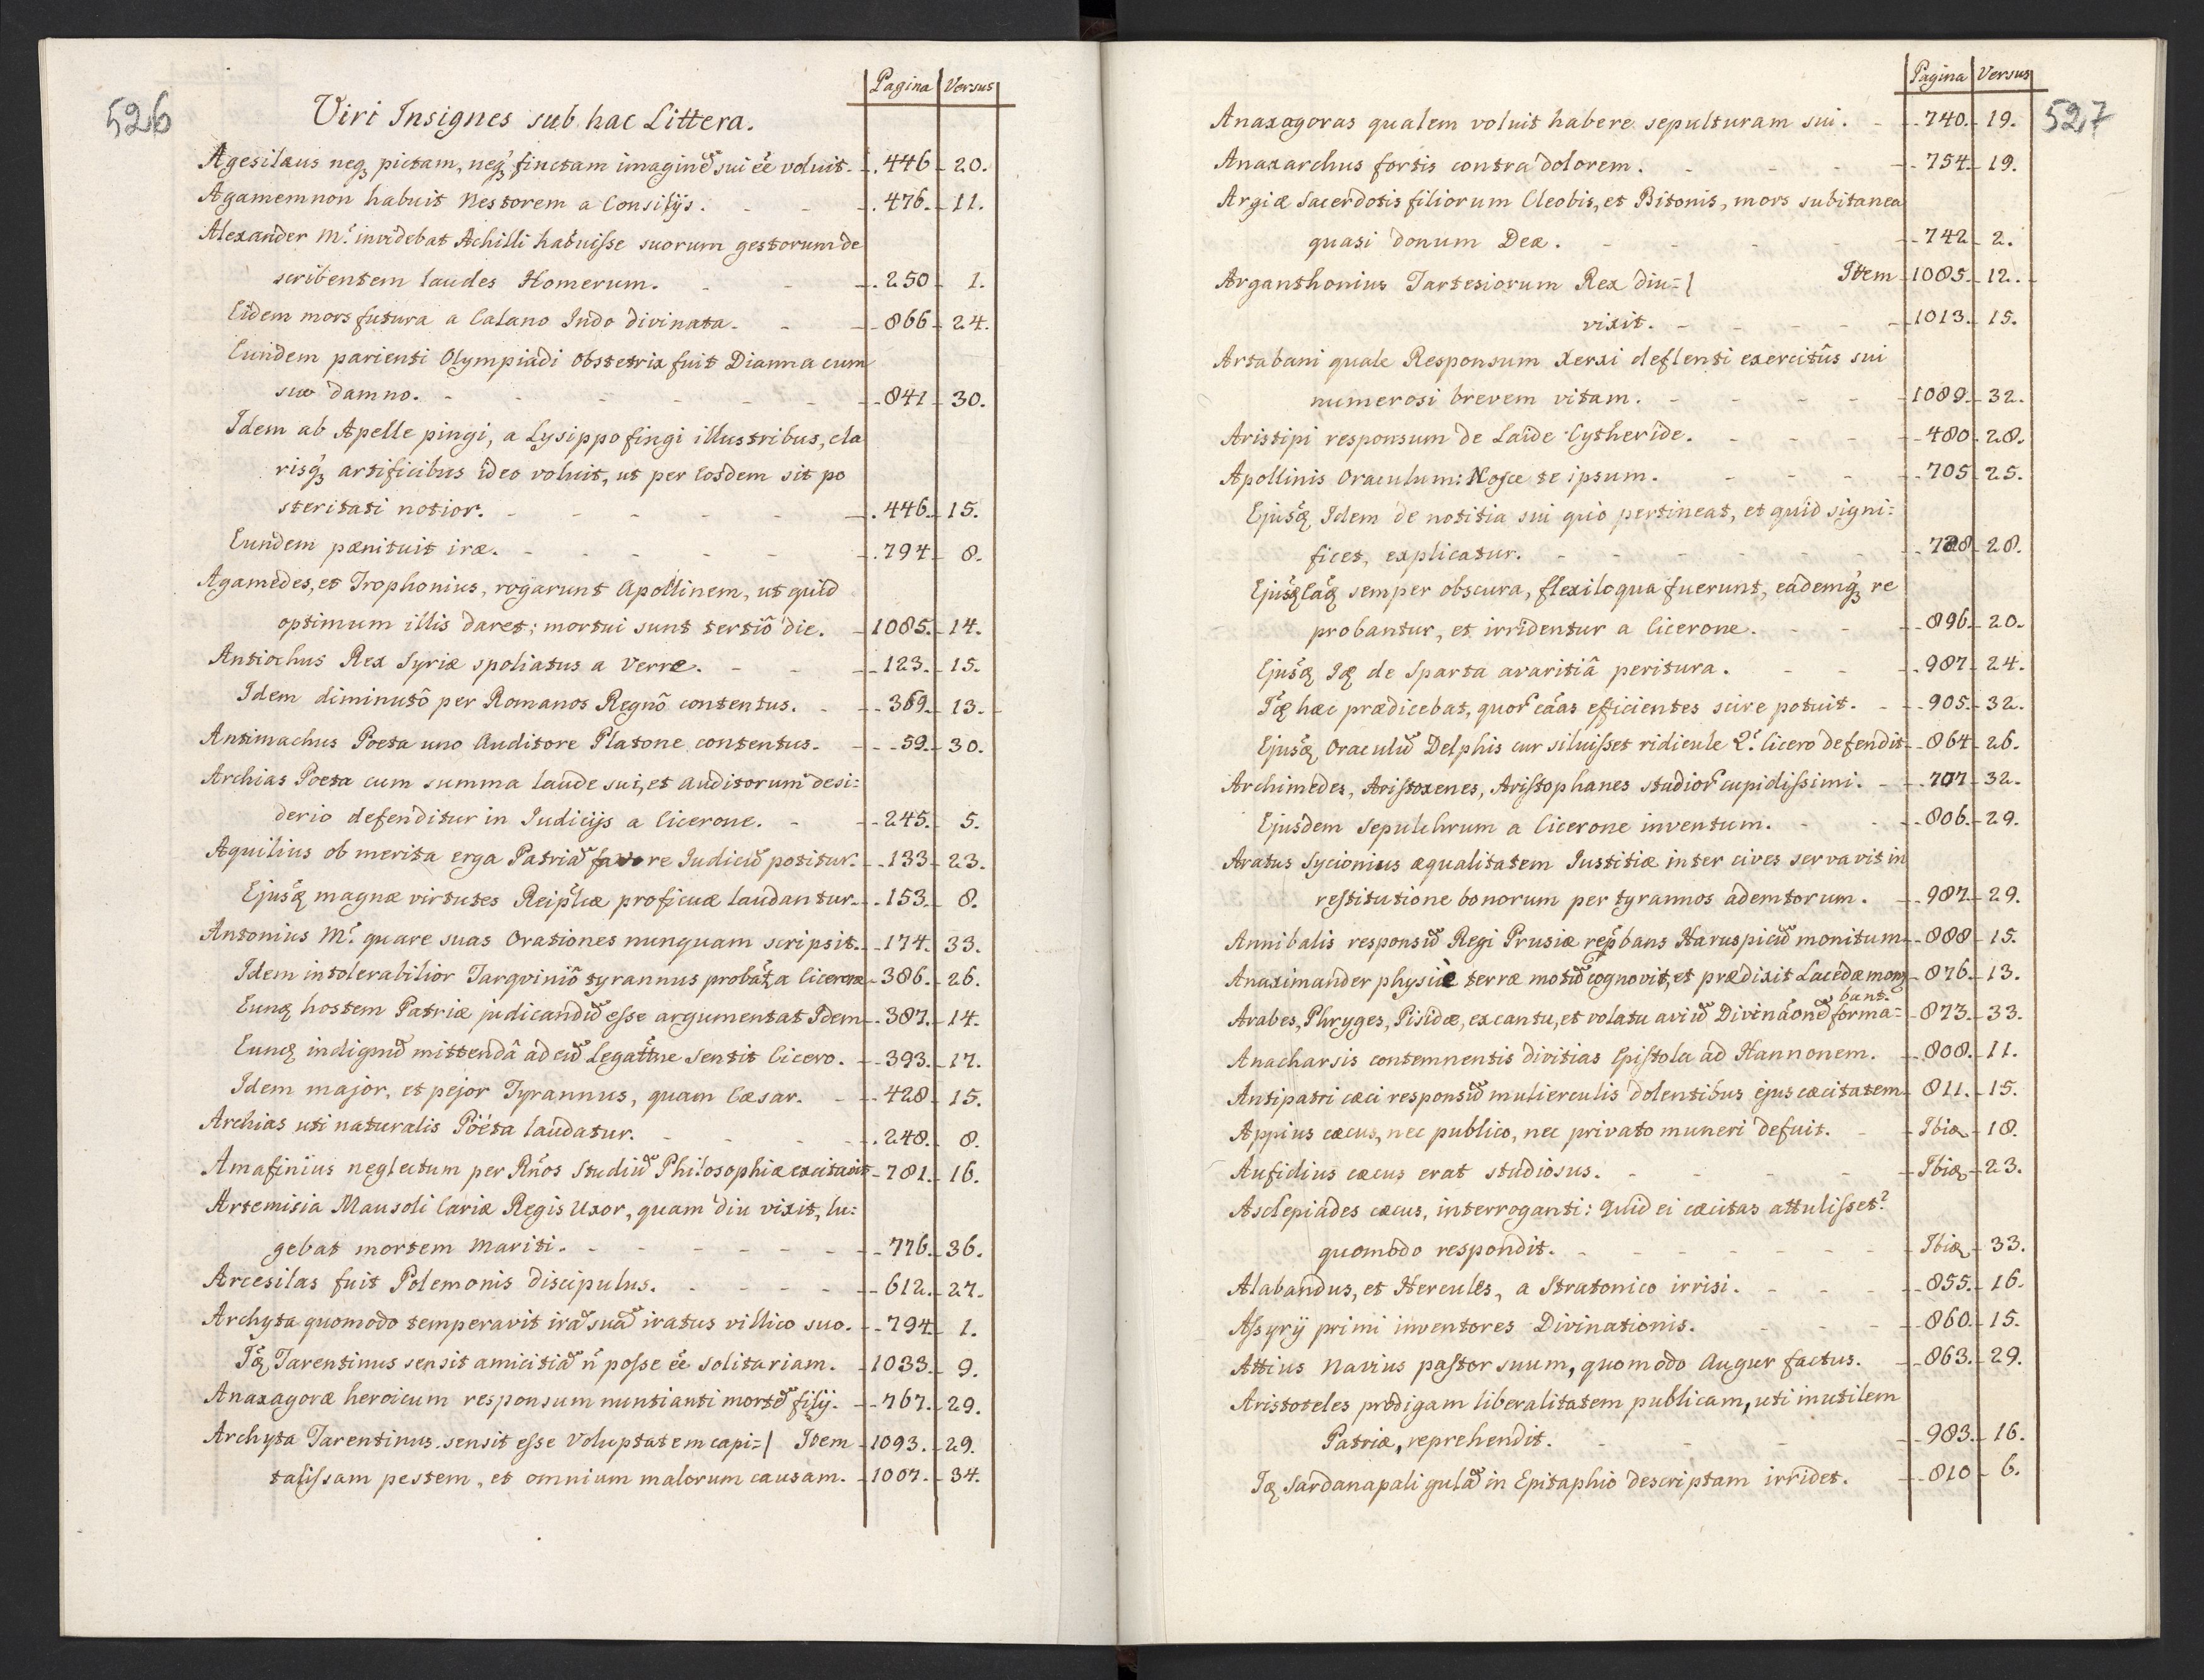 526
Pagina Versus
Viri Insignes sub hac Littera.
Agesilaus neq₃ pictam, neq₃ finctam imaginē sui ēē voluit. 446 20.
Agamemnon habuit Nestorem a Consilijs. 476. 11.
Alexander M.ˢ invidebat Achilli habuisse suorum gestorum de
scribentem laudes Homerum. 250 1.
Eidem mors futura a Calano Indo divinata. 866 24.
Eundem parienti Olympiadi obstetrix fuit Dianna cum
suo damno. 841 30.
Idem ab Apelle pingi, a Lysippo fingi illustribus, cla
risq₃ artificibus ideo voluit, ut per Eosdem sit po
steritati notior. 446. 15.
Eundem pænituit iræ. 794 8.
Agamedes, et Trophonius, rogarunt Apollinem, ut quid
optimum illis daret; mortui sunt tertiô die. 1085. 14.
Antiochus Rex Syriæ spoliatus a Verre. 123. 15.
Idem diminutô per Romanos Regnô contentus. 369. 13.
Antimachus Poeta uno Auditore Platone contentus. 59. 30.
Archias Poeta cum summa laude sui, et Auditorum desi=
derio defenditur in Judicijs a Cicerone. 245. 5.
Aquilius ob merita erga Patriā favore Judiciū potitur. 133 23.
Ejusq magnæ virtutes Reipl̄cæ proficuæ laudantur. 153. 8.
Antonius M.ˢ quare suas Orationes nunquam scripsit. 174. 33.
Idem intolerabilior Tarqviniô tyrannus probat̄ a Cicerone 386. 26.
Eunq hostem Patriæ judicandū esse argumentat Idem 387. 14.
Eunq indignū mittendâ ad eū Legat̄ne sentit Cicero. 393. 17.
Idem major, et pejor Tyrannus, quam Cæsar. 428 15.
Archias uti naturalis Pöeta laudatur. 248. 8.
Amafinius neglectum per Rn̄os Studiū Philosophiæ excitavit 781. 16.
Artemisia Mausoli Cariæ Regis Uxor, quam diu vixit, lu=
gebat mortem Mariti. 776. 36.
Arcesilas fuit Polemonis discipulus. 612. 27.
Archyta quomodo temperavit irā suā iratus villico suo. 794. 1.
Iq Tarentinus sensit amicitiā n̄ posse ēē solitariam. 1033. 9.
Anaxagoræ heroicum responsum nuntianti mortē filij. 767. 29.
Archyta Tarentinus sensit esse Voluptatem capi=| Idem 1093. 29.
talissam pestem, et omnium malorum causam. 1007. 34.
527
Pagina Versus
Anaxagoras qualem voluit habere sepulturam sui. 740. 19.
Anaxarchus fortis contra dolorem. 754. 19.
Argiæ Sacerdotis filiorum Cleobis, et Bitonis, mors subitanea
quasi donum Deæ. 742 2.
Arganthonius Tartesiorum Rex diu=| Item 1085. 12.
vixit. 1013. 15.
Artabani quale Responsum Xerxi deflenti exercitûs sui
numerosi brevem vitam. 1089. 32.
Aristipi responsum de Laide Cytheride. 480 28.
Apollinis Oraculum: Nosce te ipsum. 705 25.
Ejusq Idem de notitia sui quo pertineat, et quid signi=
ficet, explicatur. 728 28.
Ejusq Eaq semper obscura, flexiloqua fuerunt, eademq₃ re
probantur, et irridentur a Cicerone. 896. 20.
Ejusq Iq de Sparta avaritiâ peritura. 987 24.
Iq hæc prædicebat, quor cāas efficientes scire potuit. 905. 32.
Ejusq Oraculū Delphis cur siluisset ridicule Q.ˢ Cicero defendit 864 26.
Archimedes, Aristoxenes, Aristophanes studior cupidissimi. 707 32.
Ejusdem sepulchrum a Cicerone inventum. 806. 29.
Aratus Sycionius æqualitatem Justitiæ inter cives servavit in
restitutione bonorum per tyrannos ademtorum. 987. 29.
Annibalis responsū Regi Prusiæ rep̄bans Haruspicū monitum 888 15.
Anaximander physicè terræ motū cognovit, et prædixit Lacedæmony 876. 13.
Arabes, Phryges, Pisidæ, ex cantu, et volatu aviū Divināonē forma= bant. 873. 33.
Anacharsis contemnentis divitias Epistola ad Hannonem. 808. 11.
Antipatri cæci responsū mulierculis dolentibus ejus cæcitatem 811. 15.
Appius cæcus, nec publico, nec privato muneri defuit. Ibiq 18.
Aufidius cæcus erat studiosus. Ibiq 23.
Asclepiades cæcus, interroganti: Quid ei cæcitas attulisset?
quomodo respondit. Ibiq 33.
Alabandus, et Hercules, a Stratonico irrisi. 855. 16.
Assyrij primi inventores Divinationis. 860. 15.
Attius Navius pastor suum, quomodo Augur factus. 863. 29.
Aristoteles prodigam liberalitatem publicam, uti inutilem
Patriæ, reprehendit. 983. 16.
Iq Sardanapali gulā in Epitaphio descriptam irridet. 810 6.